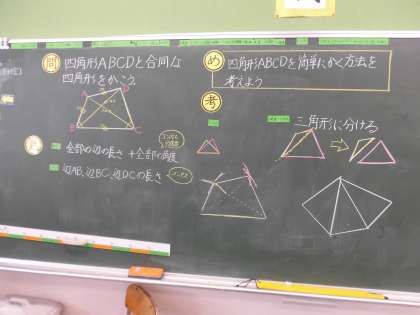 問 四角形ABCDと合同な
四角形をかこう。
A
D
B
C
全部の辺の長さ＋全部の角度
辺AB、辺BC、辺DCの長さ
コンパス
め 四角形ABCDを簡単にかく方法を
考えよう
考
三角形に分ける